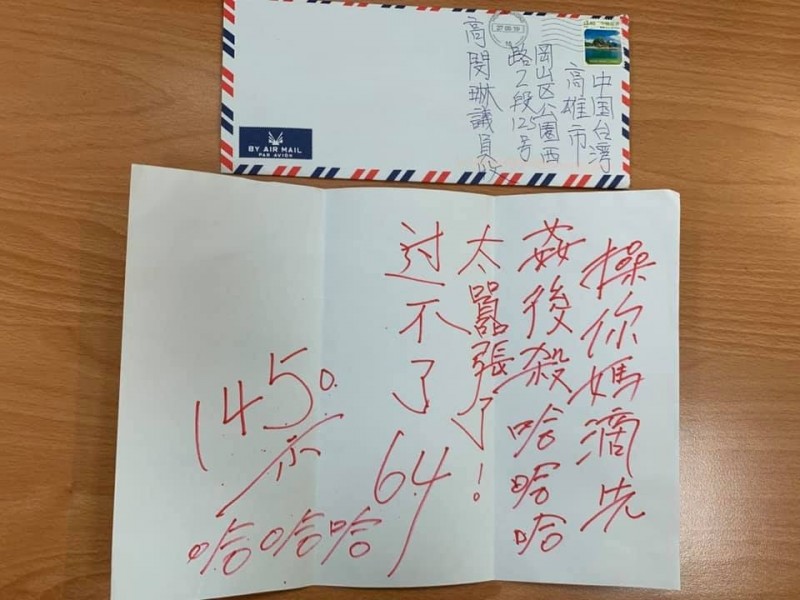 中国台湾
高雄市
岡山区公園西
路2段125号
高閔琳議員收
BY AIR MAIL
PAR AVION
操你媽滴先
姦後殺哈哈哈
太囂張了!
过不了64
1450
哈哈哈